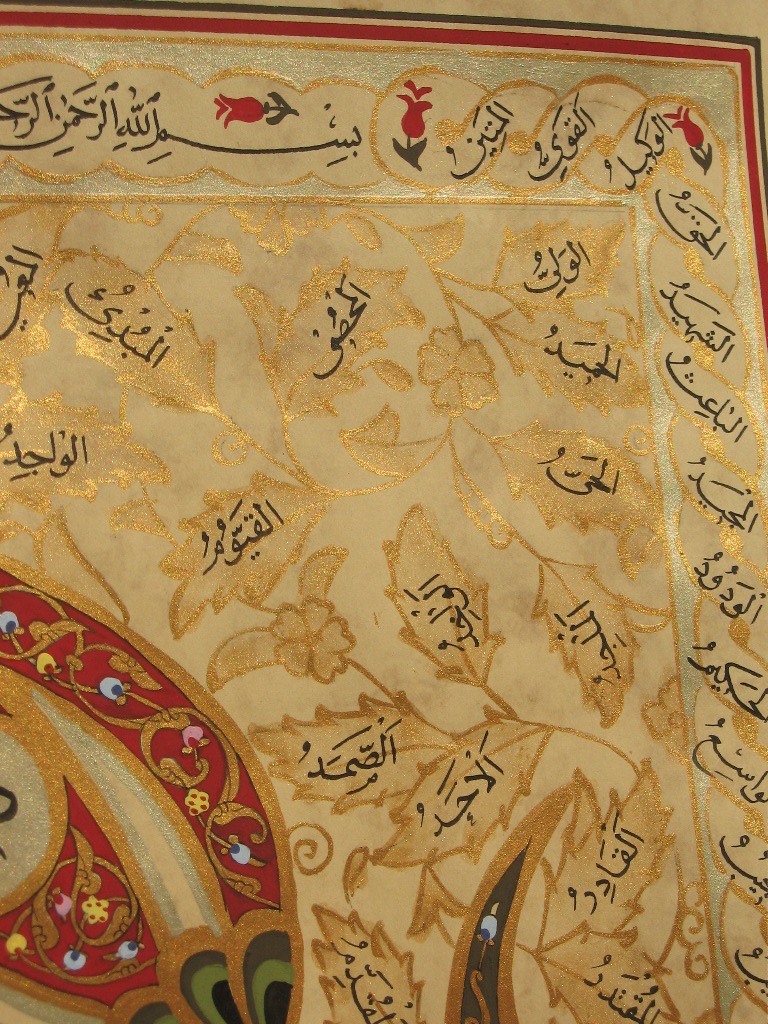 بِسْمِ اللّٰهِ الرَّحْمٰنِ
الْمَتِينُ
الْقَوِيُّ
الْوَكِيلُ
الْحَقُّ
الشَّهِيدُ
الْبَاعِثُ
الْمَجِيدُ
الْوَدُودُ
الْحَكِيمُ
الْوَاسِعُ
الْوَلِيُّ
الْحَمِيدُ
الْمُحْصِي
الْمُبْدِئُ
الْحَيُّ
الْقَيُّومُ
الْوَاجِدُ
الْمَاجِدُ
الْوَاحِدُ
الْأَحَدُ
الصَّمَدُ
الْقَادِرُ
الْمُقْتَدِرُ
الْمُقَدِّمُ